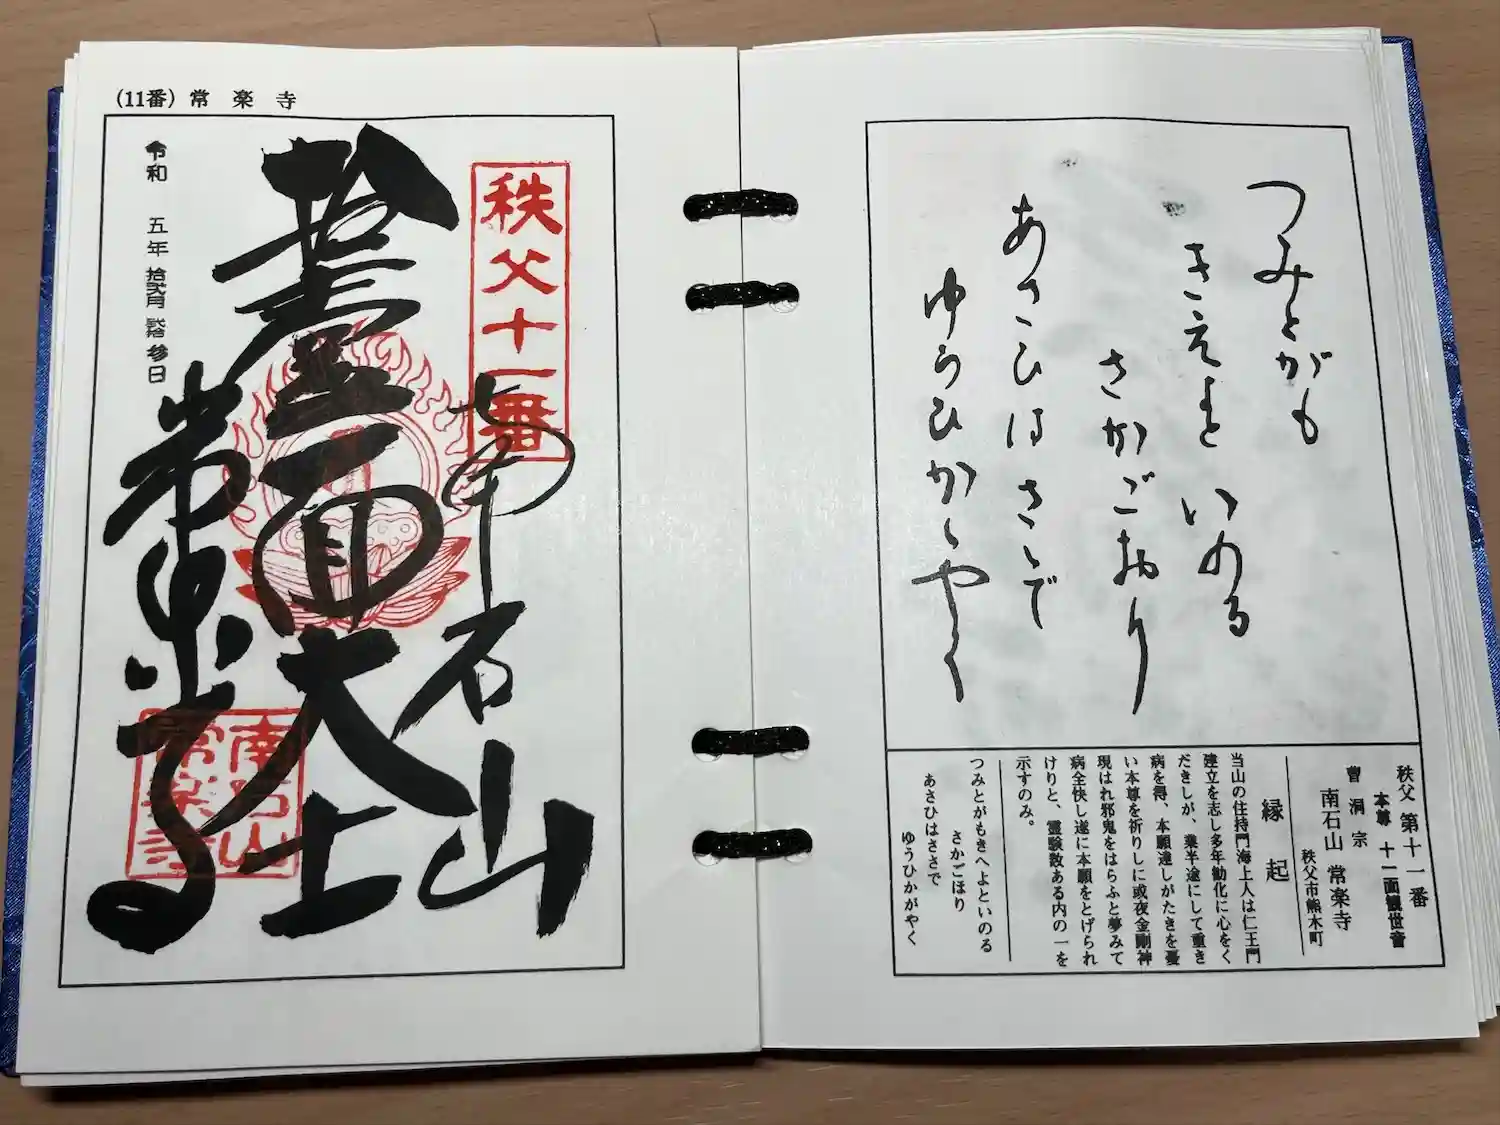 (11番) 常楽寺
令和 五年 拾弐月 参日
秩父十一番
南石山
十一面大士
常楽寺
南石山
常楽寺
つみとがも
きえよと いのる
さかごおり
あさひはさゝで
ゆうひかゝやく
秩父 第十一番
本尊 十一面観世音
曹洞宗
南石山 常楽寺
秩父市熊木町
縁起
当山の住持門海上人は仁王門
建立を志し多年勧化に心をく
だきしが、業半途にして重き
病を得、本願達しがたきを憂
い本尊を祈りしに或夜金剛神
現はれ邪鬼をはらふと夢みて
病全快し遂に本願をとげられ
けりと、霊験数ある内の一を
示すのみ。
つみとがもきへよといのる
さかごほり
あさひはささで
ゆうひかがやく